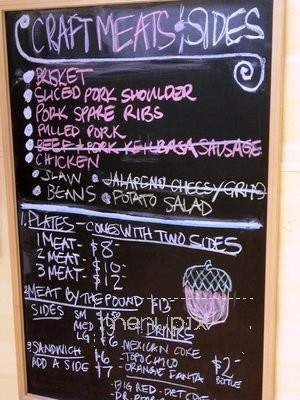 CRAFT MEATS & SIDES
BRISKET
SLICED PORK SHOULDER
PORK SPARE RIBS
PULLED PORK
BEEF + PORK KEILBASA SAUSAGE
CHICKEN
SLAW JALAPENO CHEESY GRITS
BEANS POTATO SALAD
1. PLATES - COMES WITH TWO SIDES
1 MEAT - $8-
2 MEAT - $10-
3 MEAT - $12-
2. MEAT BY THE POUND $13
SIDES SM
MED DRINKS
LG MEXICAN COKE
3. SANDWICH $6 - TOPO CHICO $2-
ADD A SIDE $7 - ORANGE FANTA BOTTLE
- BIG RED - DIET COKE
- DR. POP
menupix